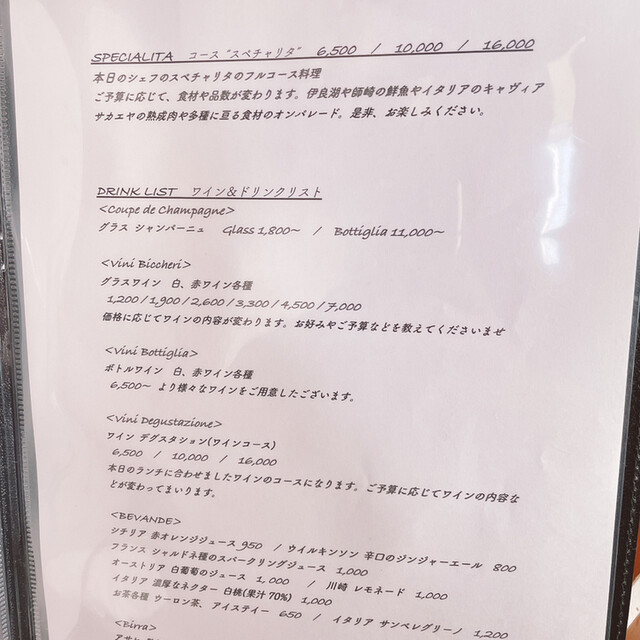 SPECIALITA コース "スペチャリタ" 6,500 / 10,000 / 16,000
本日のシェフのスペチャリタのフルコース料理
ご予算に応じて、食材や品数が変わります。伊良湖や師崎の鮮魚やイタリアのキャヴィア
サカエヤの熟成肉や多種に亘る食材のオンパレード。是非、お楽しみください。
DRINK LIST ワイン&ドリンクリスト
<Coupe de Champagne>
グラス シャンパーニュ Glass 1,800～ / Bottiglia 11,000～
<Vini Biccheri>
グラスワイン 白、赤ワイン各種
1,200 / 1,900 / 2,600 / 3,300 / 4,500 / 7,000
価格に応じてワインの内容が変わります。お好みやご予算などを教えてくださいませ
<Vini Bottiglia>
ボトルワイン 白、赤ワイン各種
6,500～ より様々なワインをご用意したございます。
<Vini Degustazione>
ワイン デグスタション(ワインコース)
6,500 / 10,000 / 16,000
本日のランチに合わせましたワインのコースになります。ご予算に応じてワインの内容な
とが変わってまいります。
<BEVANDE>
シチリア 赤オレンジジュース 950 / ウイルキンソン 辛口のジンジャーエール 800
フランス シャルドネ種のスパークリングジュース 1,000
オーストリア 白葡萄のジュース 1,000 / 川崎 レモネード 1,000
イタリア 濃厚なネクター 白桃(果汁70%) 1,000
お茶各種 ウーロン茶、アイスティー 650 / イタリア サンペレグリーノ 1,200
<Birra>